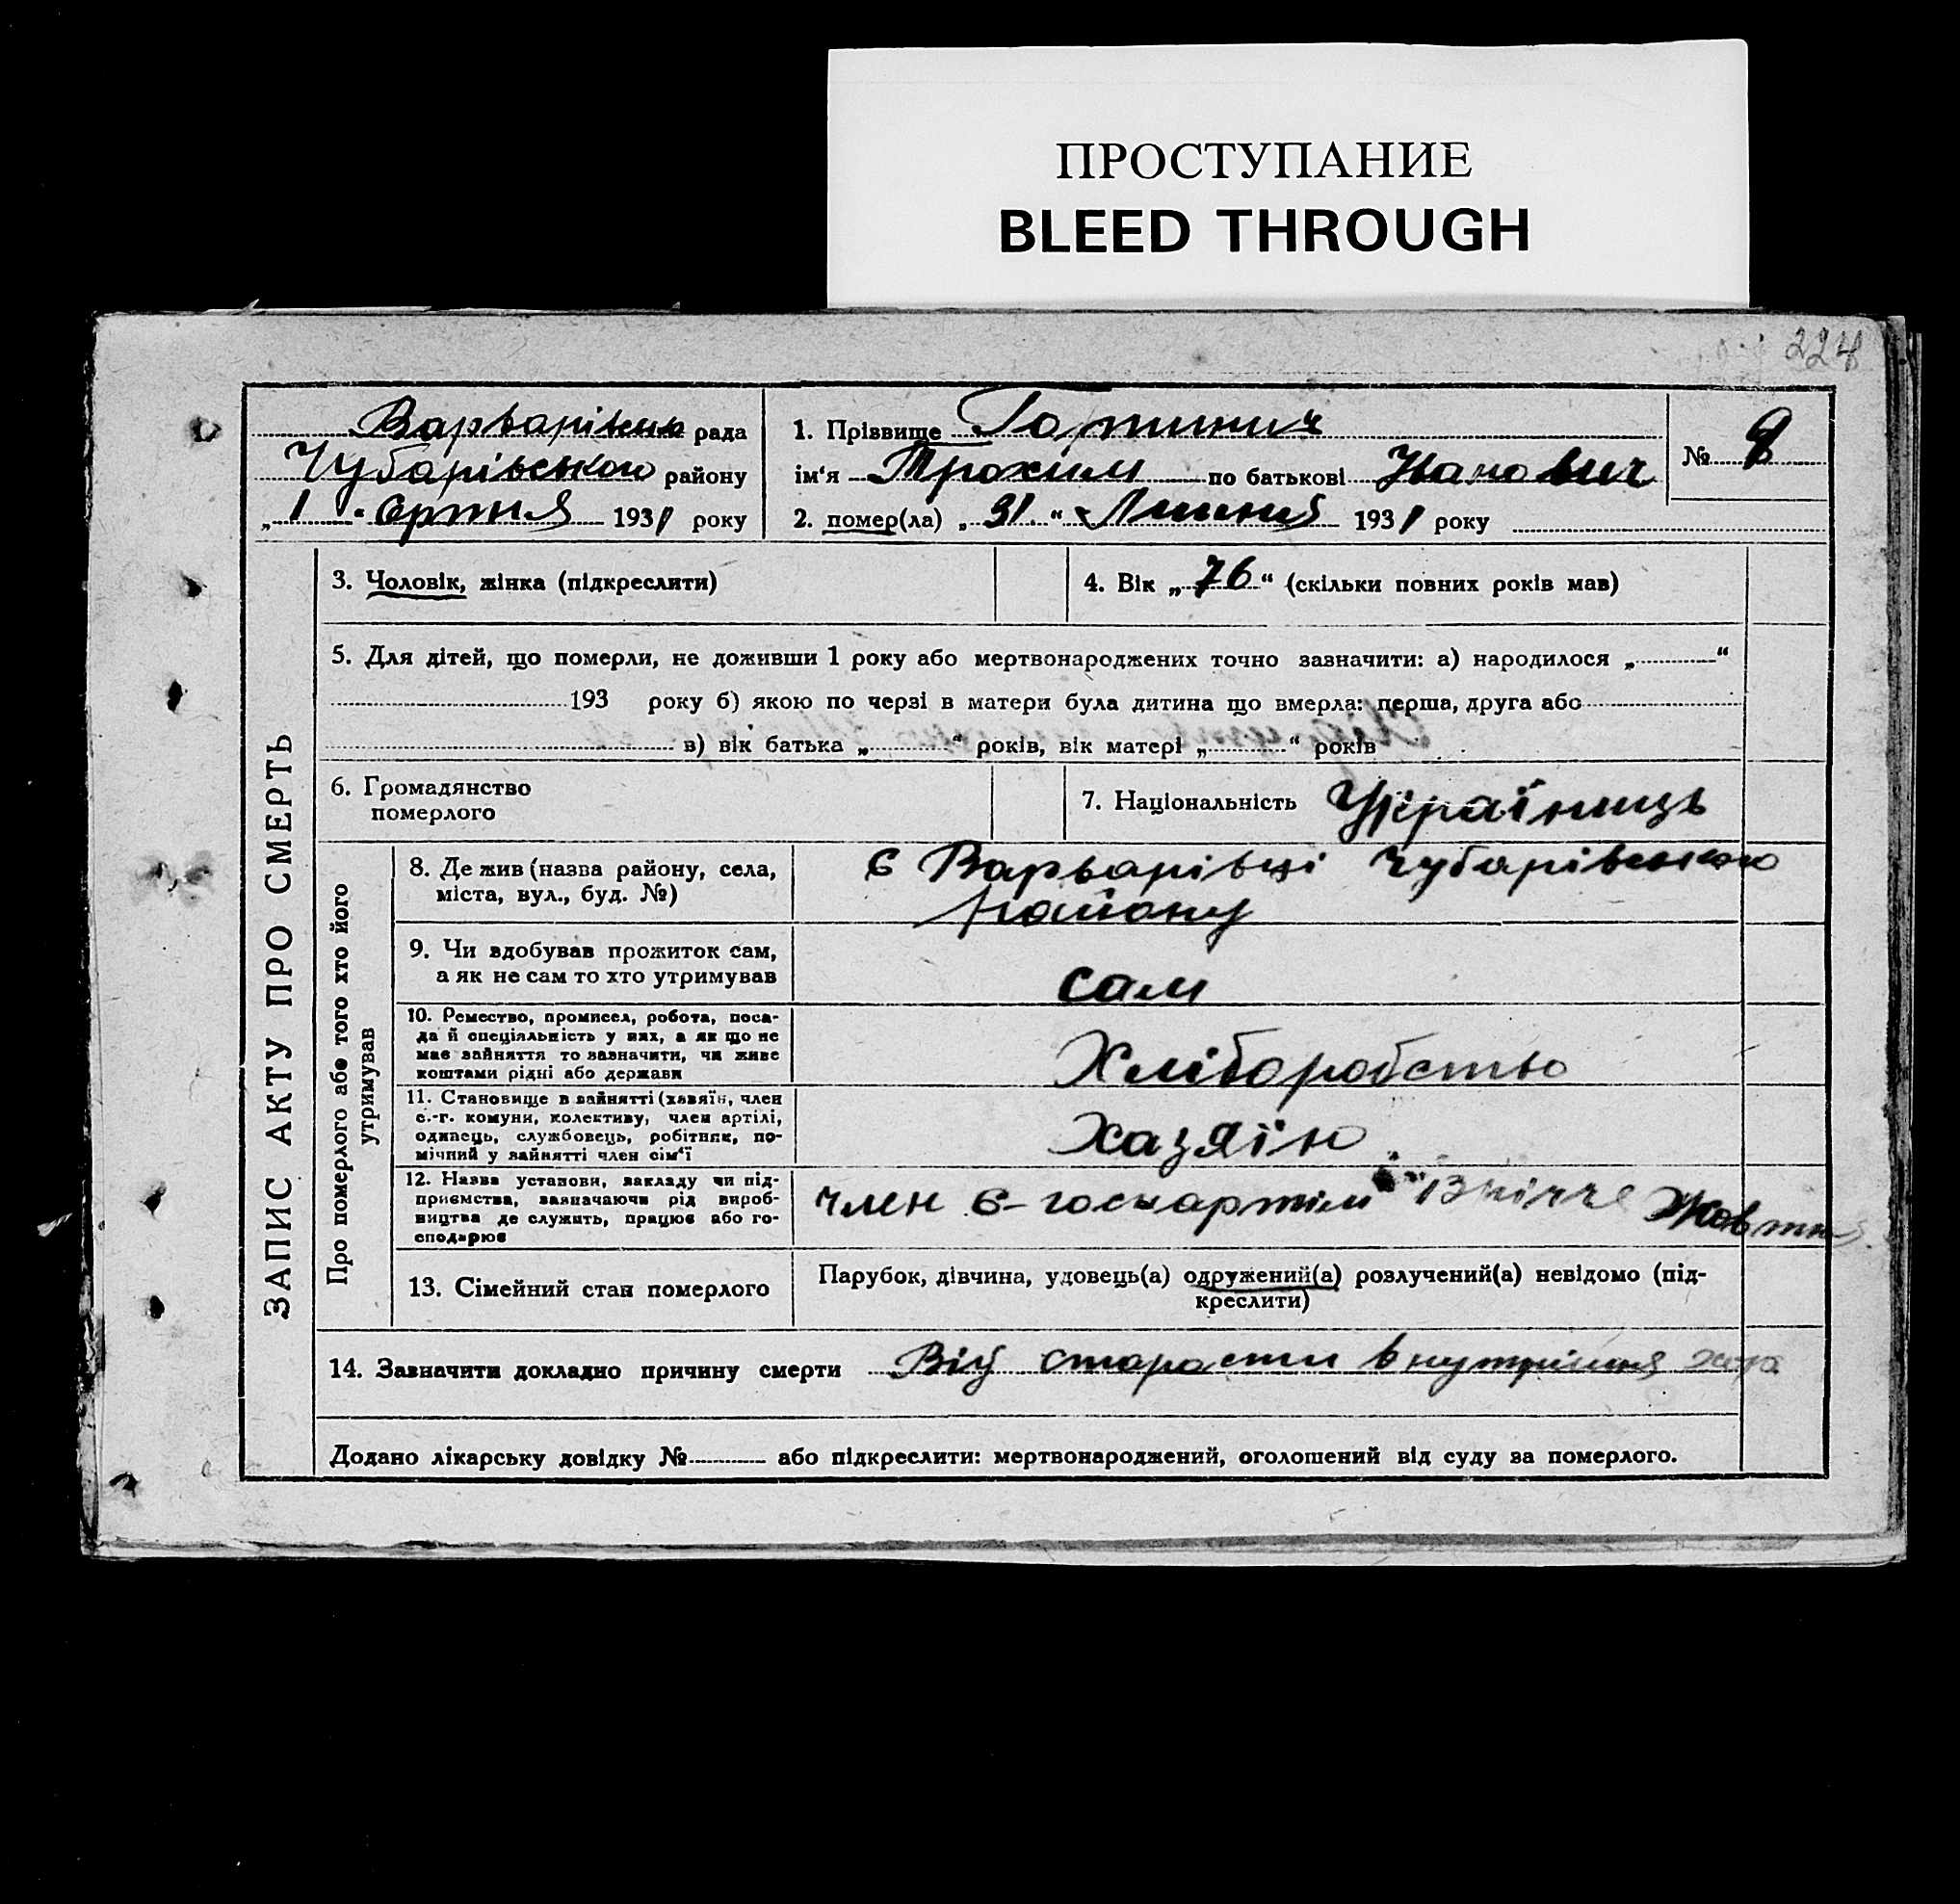 ПРОСТУПАНИЕ
BLEED THROUGH
224
Варварівська рада
Чубарівського району
„ 1 “ Серпня 1931 року
1. Прізвище
ім‘я Трохим по батькові Іванович
2. помер(ла) „ 31. “ Липня 1931 року
№ 8
ЗАПИС АКТУ ПРО СМЕРТЬ
3. Чоловік, жінка (підкреслити)
4. Вік „ 76 “ (скільки повних років мав)
5. Для дітей, що померли, не доживши 1 року або мертвонароджених точно зазначити: а) народилося „ “
193 року б) якою по черзі в матери була дитина що вмерла: перша, друга або
в) вік батька „ “ років, вік матері „ “ років
6. Громадянство
померлого
7. Національність Україниць
Про померлого або того хто його
утримував
8. Де жив (назва району, села,
міста, вул., буд. №)
С Варварівці Чубарівського
району
9. Чи вдобував прожиток сам,
а як не сам то хто утримував
сам
10. Ремество, промисел, робота, поса-
да й спеціяльність у них, а як що не
має зайняття то зазначити, чи живе
коштами рідні або держави
Хліборобство
11. Становище в зайнятті (хазяїн, член
с.-г. комуни, колективу, член артілі,
одинець, службовець, робітник, по-
мічний у зайнятті член сім‘ї
Хазяїн
12. Назва установи, закладу чи під-
приємства, зазначаючи рід вироб-
ництва де служить, працює або го-
сподарює
член С-госпартіли Жовтня
13. Сімейний стан померлого
Парубок, дівчина, удовець(а) одружений(а) розлучений(а) невідомо (під-
креслити)
14. Зазначити докладно причину смерти Від старости внутрішня
Додано лікарську довідку № або підкреслити: мертвонароджений, оголошений від суду за померлого.